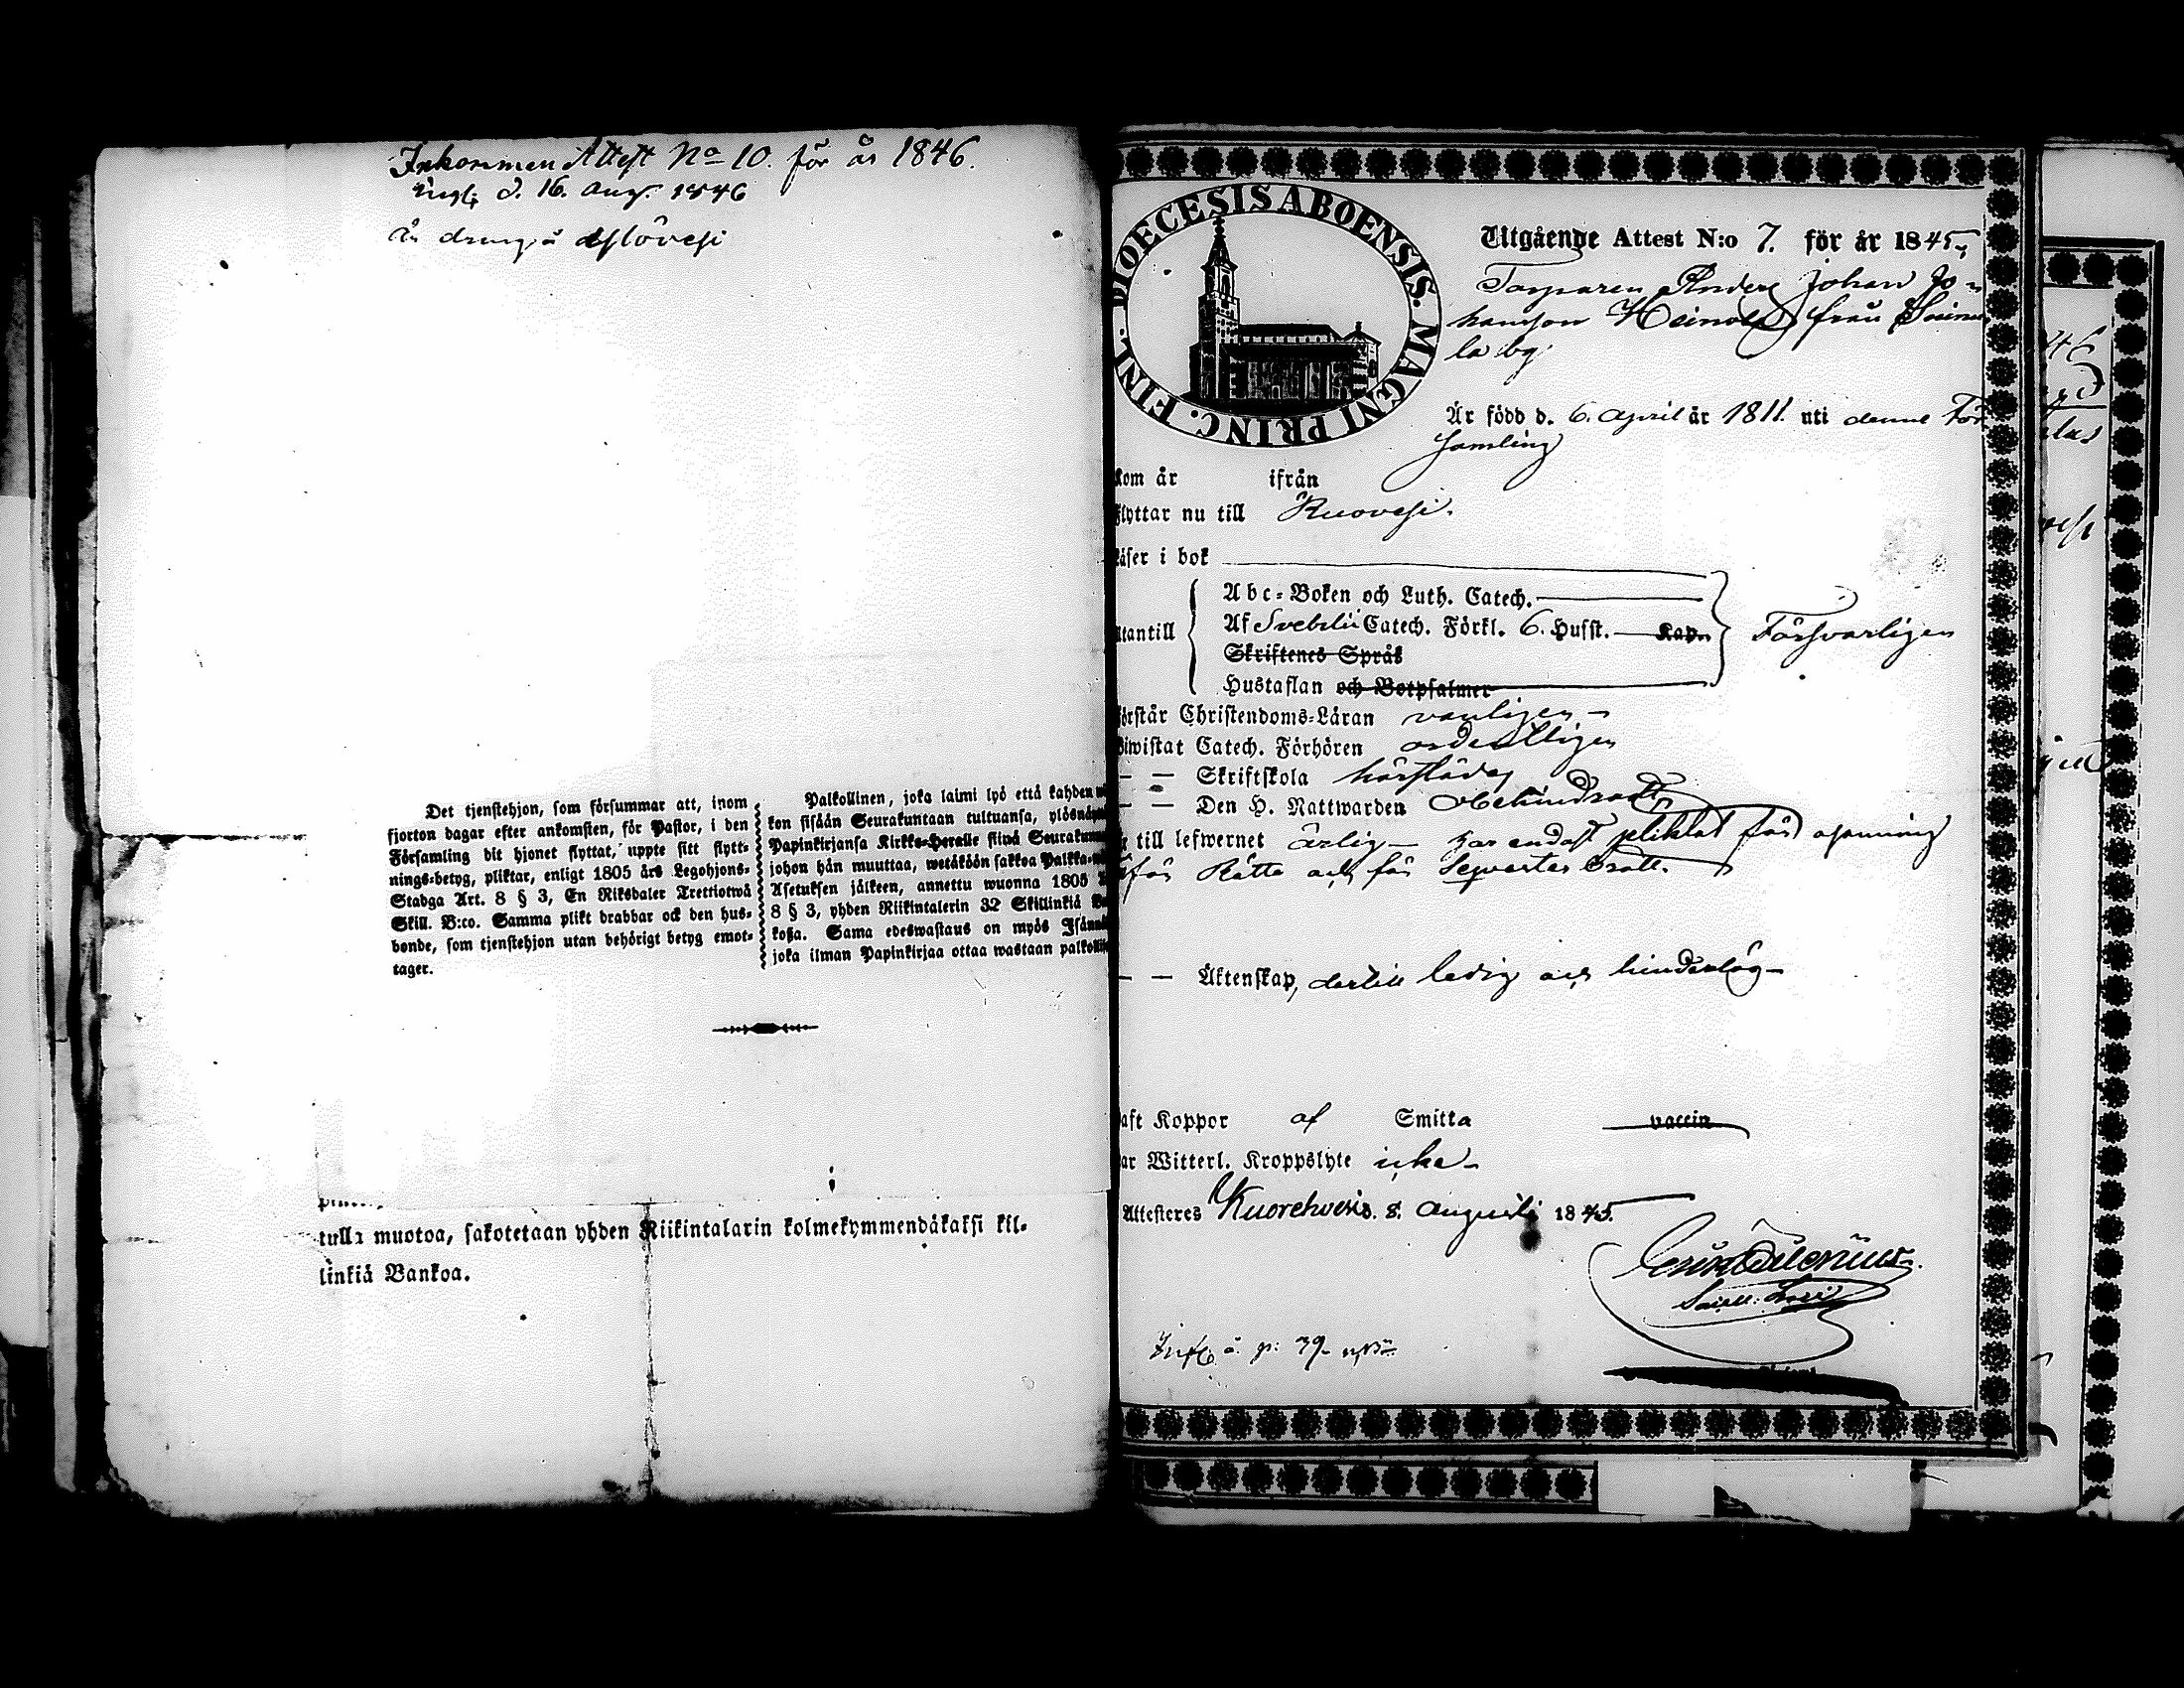 Inkommen Attest No 10. för år 1846.
d. 16. Aug. 1846
Är dräng i
Det tjenstehjon, som försummar att, inom
fjorton dagar efter ankomsten, för Pastor, i den
Församling dit hjonet flyttat, uppte sitt flytt-
nings-betyg, pliktar, enligt 1805 års Legohjons-
Stadga Art. 8 § 3, En Riksdaler Trettiotwå
Skill. B:co. Samma plikt drabbar ock den hus-
bonde, som tjenstehjon utan behörigt betyg emot-
tager.
Palkollinen, joka laimi lyö että kahden
kon sisään Seurakuntaan tultuansa, ylösnäy
Papinkirjansa Kirkko-Herralle siinä Seurakunn
johon hän muuttaa, wetäköön sakkoa Palkka-
Asetuksen jälkeen, annettu wuonna 1805
8 § 3, yhden Riikintalerin 32 Skillinkiä
koßa. Sama edeswastaus on myös Isännä
joka ilman Papinkirjaa ottaa wastaan palkolli
tulla muotoa, sakotetaan yhden Riikintalarin kolmekymmendäkaksi kil-
linkiä Bankoa.
DIOECESIS ABOENSIS. MAGNI PRINC. FINL.
Utgående Attest N:o 7. för år 1845,
Torparen Anders Johan Jo-
hansson Heinola från
la by
Är född d. 6. April år 1811. uti denna För
samling
kom år ifrån
flyttar nu till Ruovesi.
läser i bok
Abc-Boken och Luth. Catech.
utantill Af Svebilii Catech. Förkl. 6. Hufst. Kap. Försvarligen
Skriftenes Språk
Hustaflan och Botpsalmer
förstår Christendoms-Läran vanligen -
Biwistat Catech. Förhören ordentligen
— — Skriftskola
— — Den H. Nattwarden obehindradt
till lefwernet ärlig - har endast pliktat för
för Rätta och för brott.
— — Äktenskap, dertill ledig och hinderlös -
haft Koppor af Smitta vaccin
har Witterl. Kroppslyte icke -
Attesteres Kuorehvesi d. 8. Augusti 1845.
Infl. å p: 39